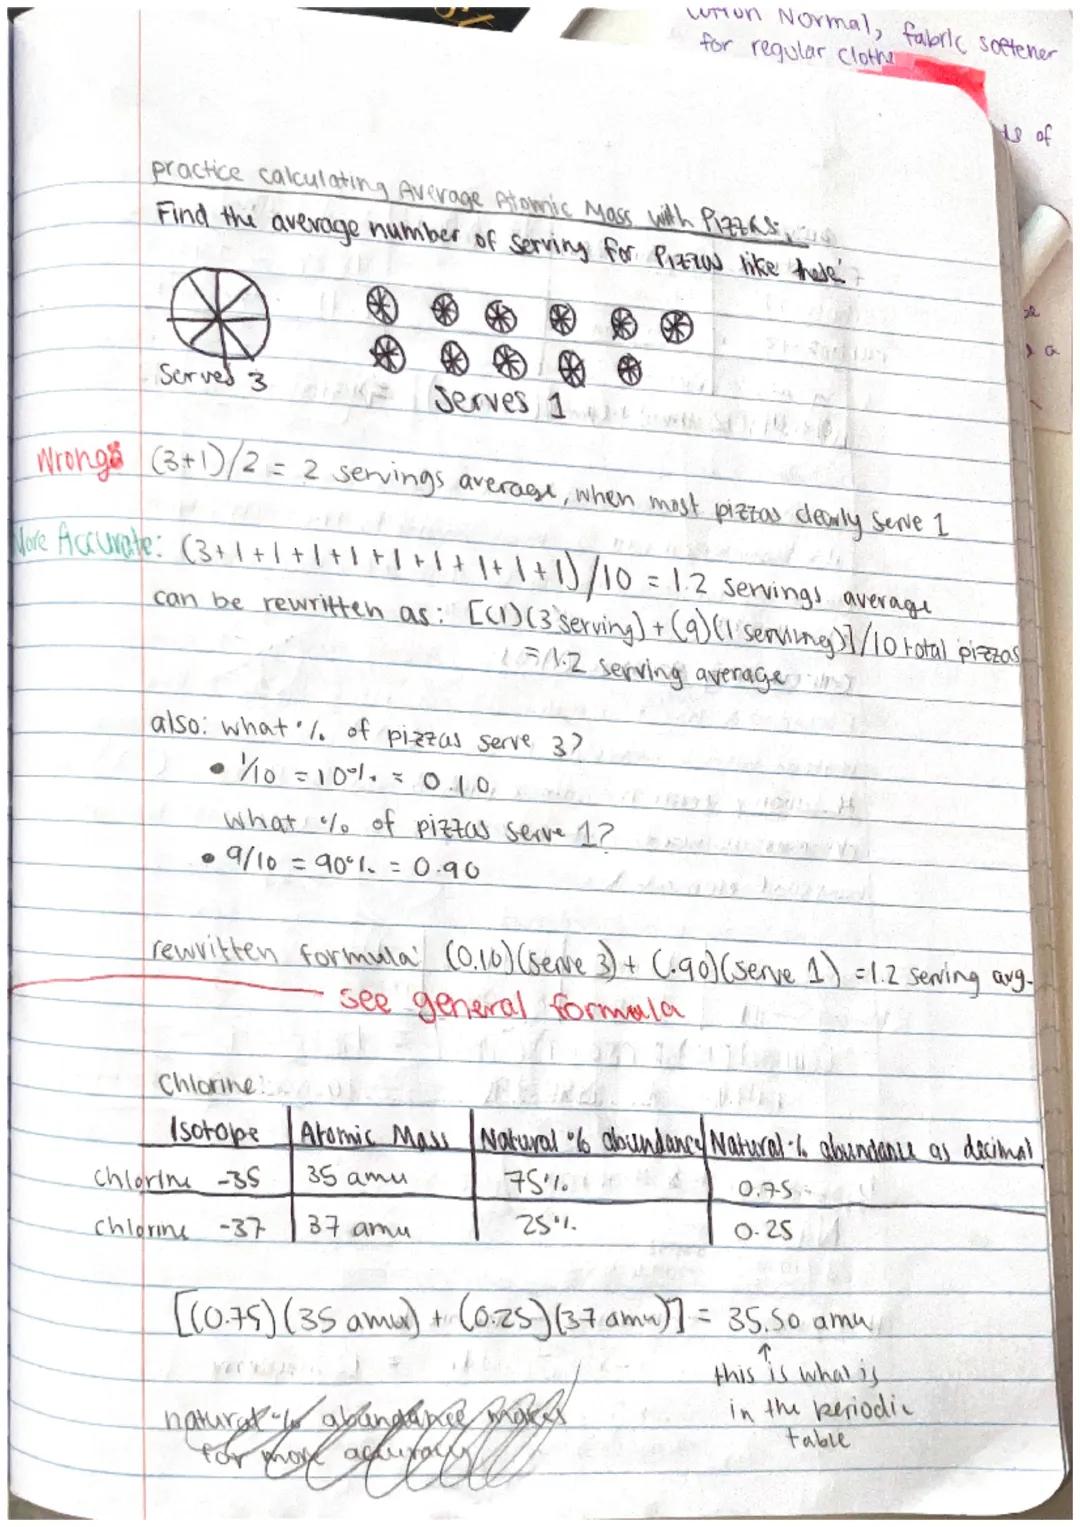 Normal, fabric softener
for regular clothe
of
practice calculating Average Atomic Mass with Pizzas:
Find the average number of serving for Pizzas like these:
Serves 3
Serves 1
Wrong: (3+1)/2 = 2 servings average, when most pizzas clearly serve 1
More Accurate: (3+1+1+1+1+1+1+1+1+1)/10 = 1.2 servings average
can be rewritten as: [(1)(3 serving) + (9)(1 serving)]/10 total pizzas
= 1.2 serving average
also: what % of pizzas serve 3?
• 1/10 = 10% = 0.10
what % of pizzas serve 1?
• 9/10 = 90% = 0.90
rewritten formula: (0.10)(serve 3) + (.90)(serve 1) = 1.2 serving avg.
see general formula
Chlorine:
Isotope Atomic Mass Natural % abundance Natural % abundance as decimal
chlorine -35 35 amu 75% 0.75
chlorine -37 37 amu 25% 0.25
[(0.75)(35 amu) + (0.25)(37 amu)] = 35.50 amu
↑
this is what is
in the periodic
table
natural % abundance makes
for more accuracy